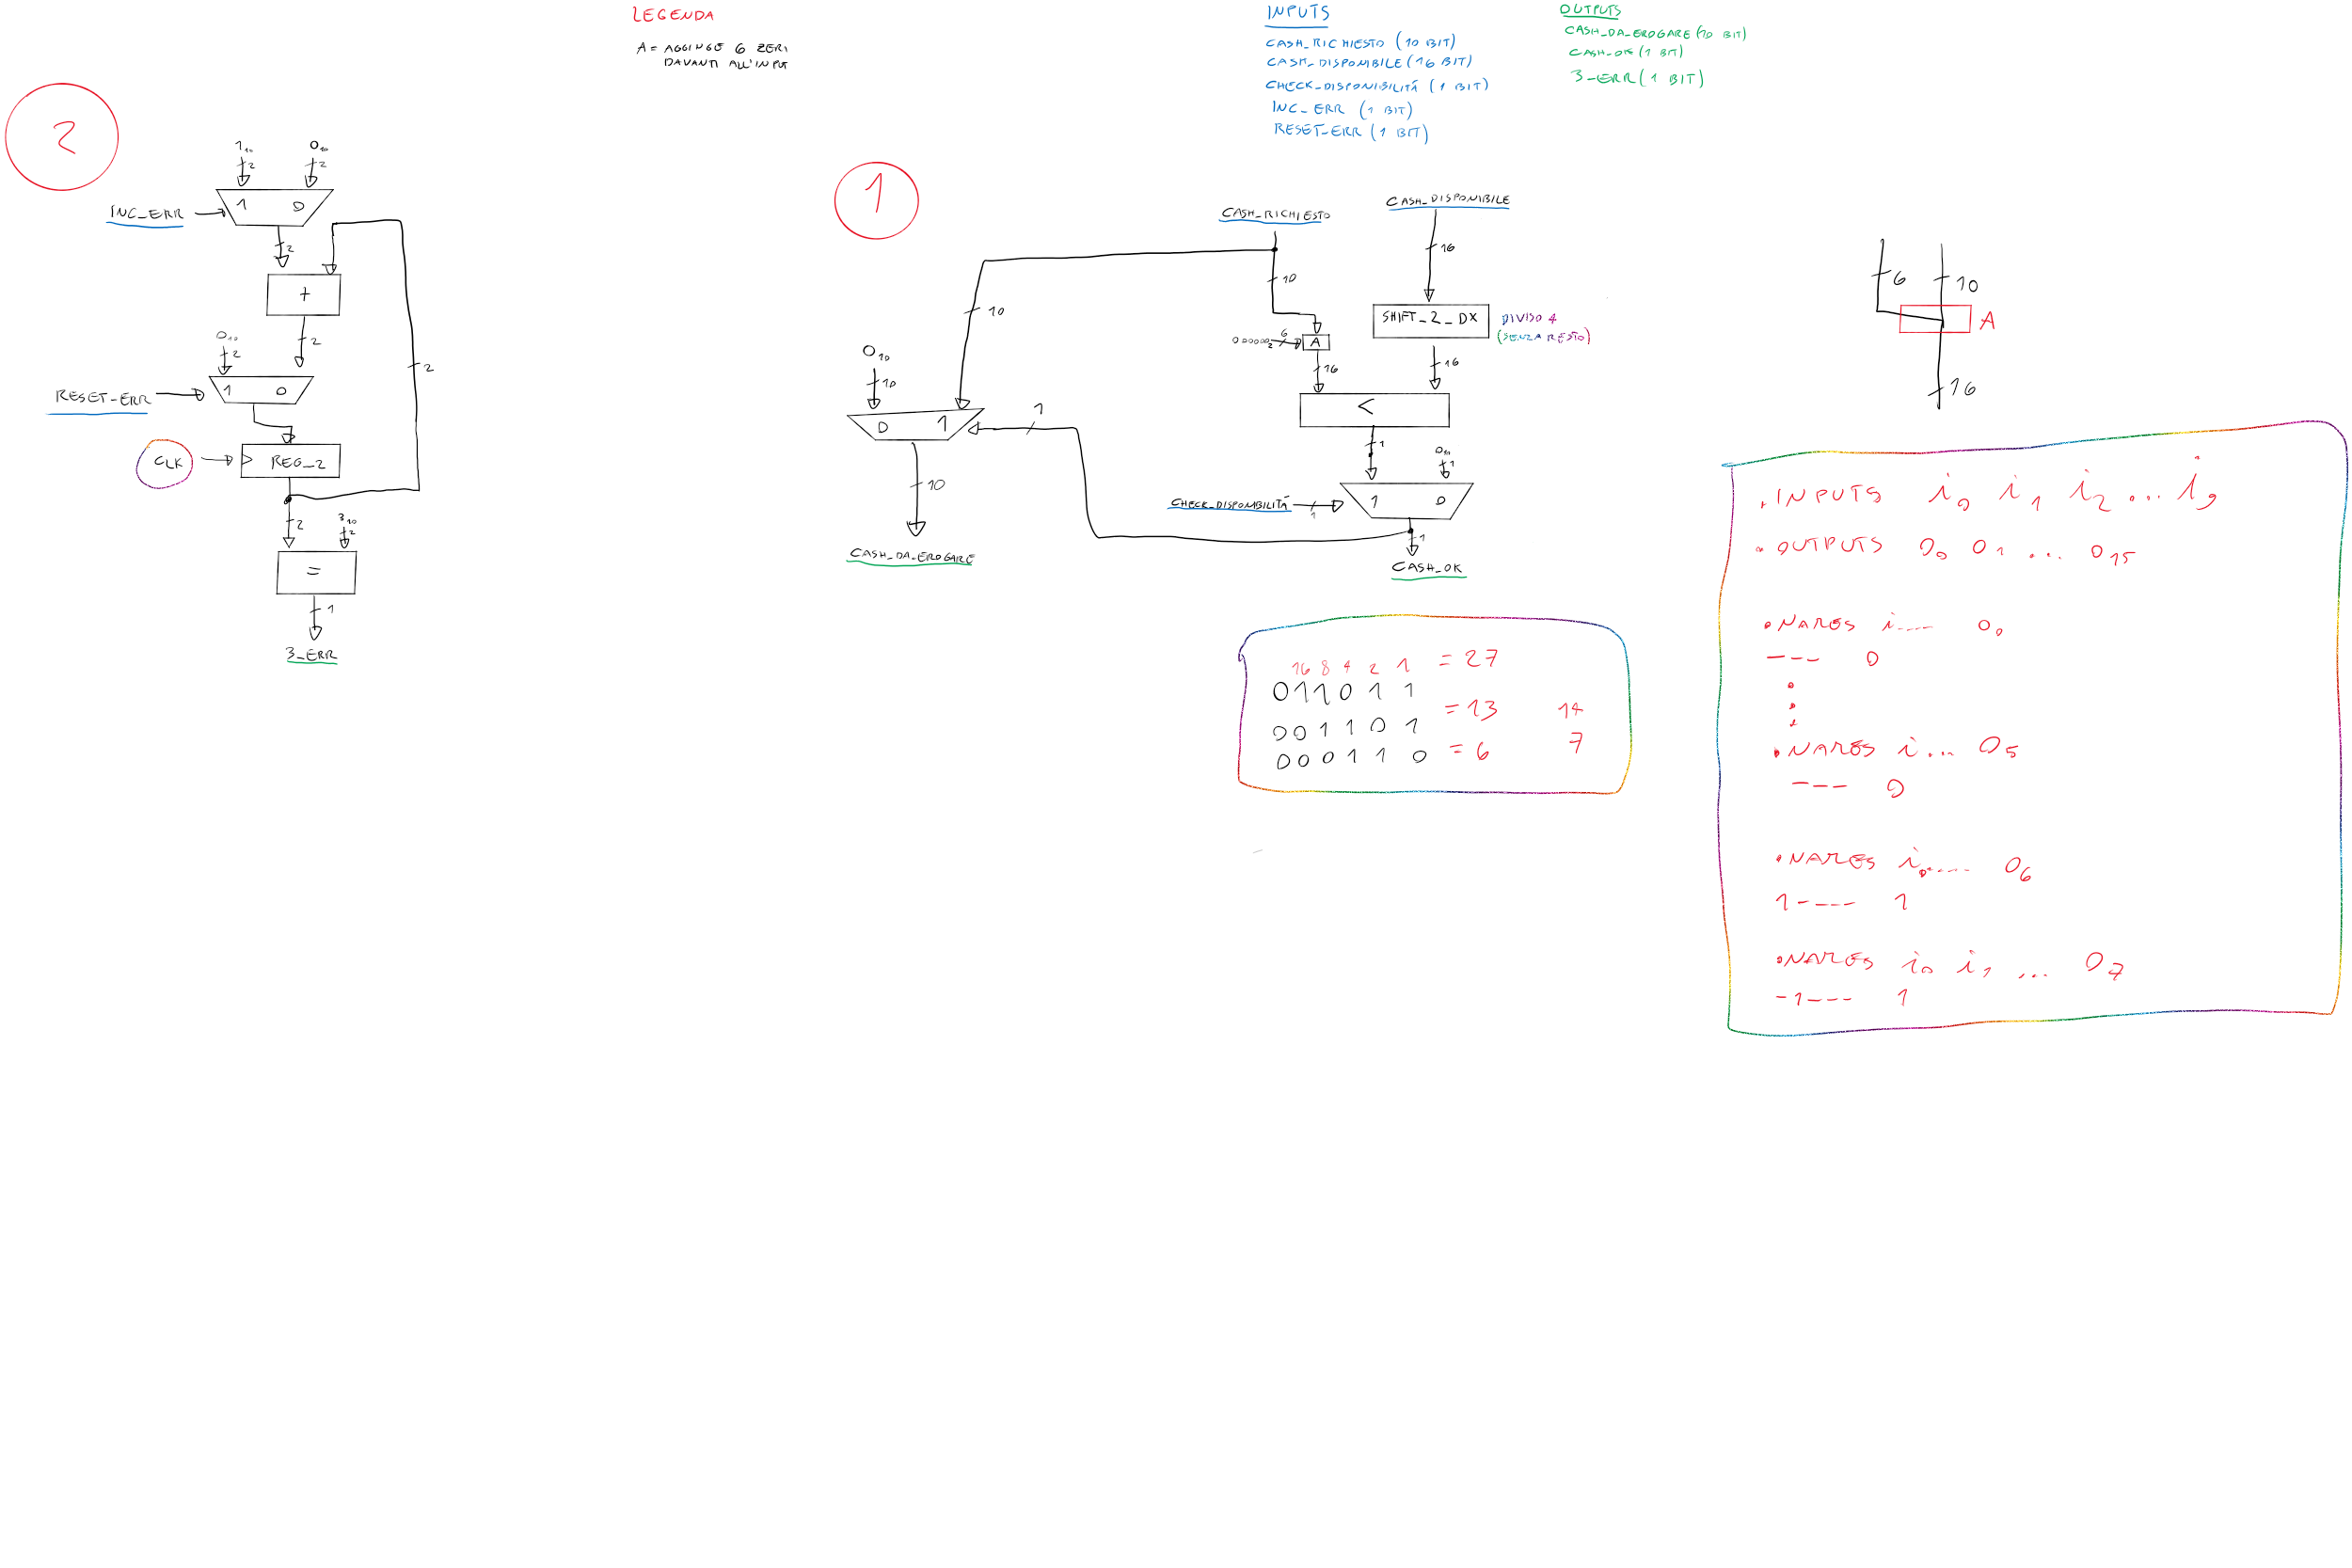 LEGENDA
A = AGGIUNGE 6 ZERI
DAVANTI ALL'INPUT
INPUTS
CASH_RICHIESTO (10 BIT)
CASH_DISPONIBILE (16 BIT)
CHECK_DISPONIBILITÁ (1 BIT)
INC_ERR (1 BIT)
RESET_ERR (1 BIT)
OUTPUTS
CASH_DA_EROGARE (10 BIT)
CASH_OK (1 BIT)
3_ERR (1 BIT)
2
1₁₀ 0₁₀
2 2
INC_ERR 1 0
2
+
0₁₀
2 2
2
RESET_ERR 1 0
CLK REG_2
2 3₁₀
2
=
1
3_ERR
1
CASH_RICHIESTO CASH_DISPONIBILE
16
10
10
SHIFT_2_DX DIVISO 4
(SENZA RESTO)
6
A
0₁₀
10
16 16
<
0 1
1
1 0₁₀
1
CHECK_DISPONIBILITÁ 1 0
1
10
1
CASH_DA_EROGARE
CASH_OK
6 10
A
16
16 8 4 2 1 = 27
011011
= 13 14
001101
000110 = 6 7
.INPUTS i₀ i₁ i₂ ... i₉
.OUTPUTS O₀ O₁ ... O₁₅
.NAMES i.... O₀
--- 0
.
.
.
.NAMES i... O₅
--- 0
.NAMES i₀.... O₆
1---- 1
.NAMES i₀ i₁ ... O₇
-1--- 1